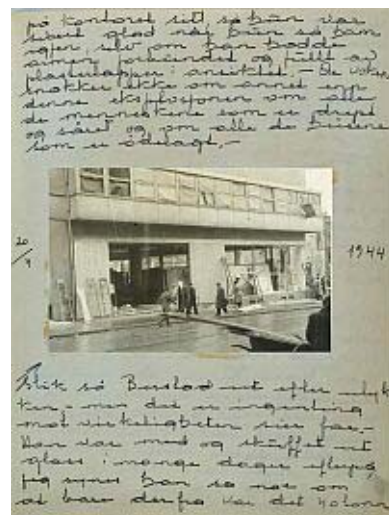 på kontoret sitt, så hun var
svært glad når hun så ham
igjen, selv om han hadde
armen forbundet og fullt av
plasterlapper i ansiktet. - De voksne
snakker ikke om annet enn
denne eksplosjonen om alle
de menneskene som er drept
og såret og om alle de husene
som er ødelagt. -
20/4
1944
Slik så ut efter ulyk
ken, - men det er ingenting
mot virkeligheten sier far. -
Han var med og skuffet ut
glass i mange dager efterpå,
jeg synes han sa noe om
at bare derfra var det